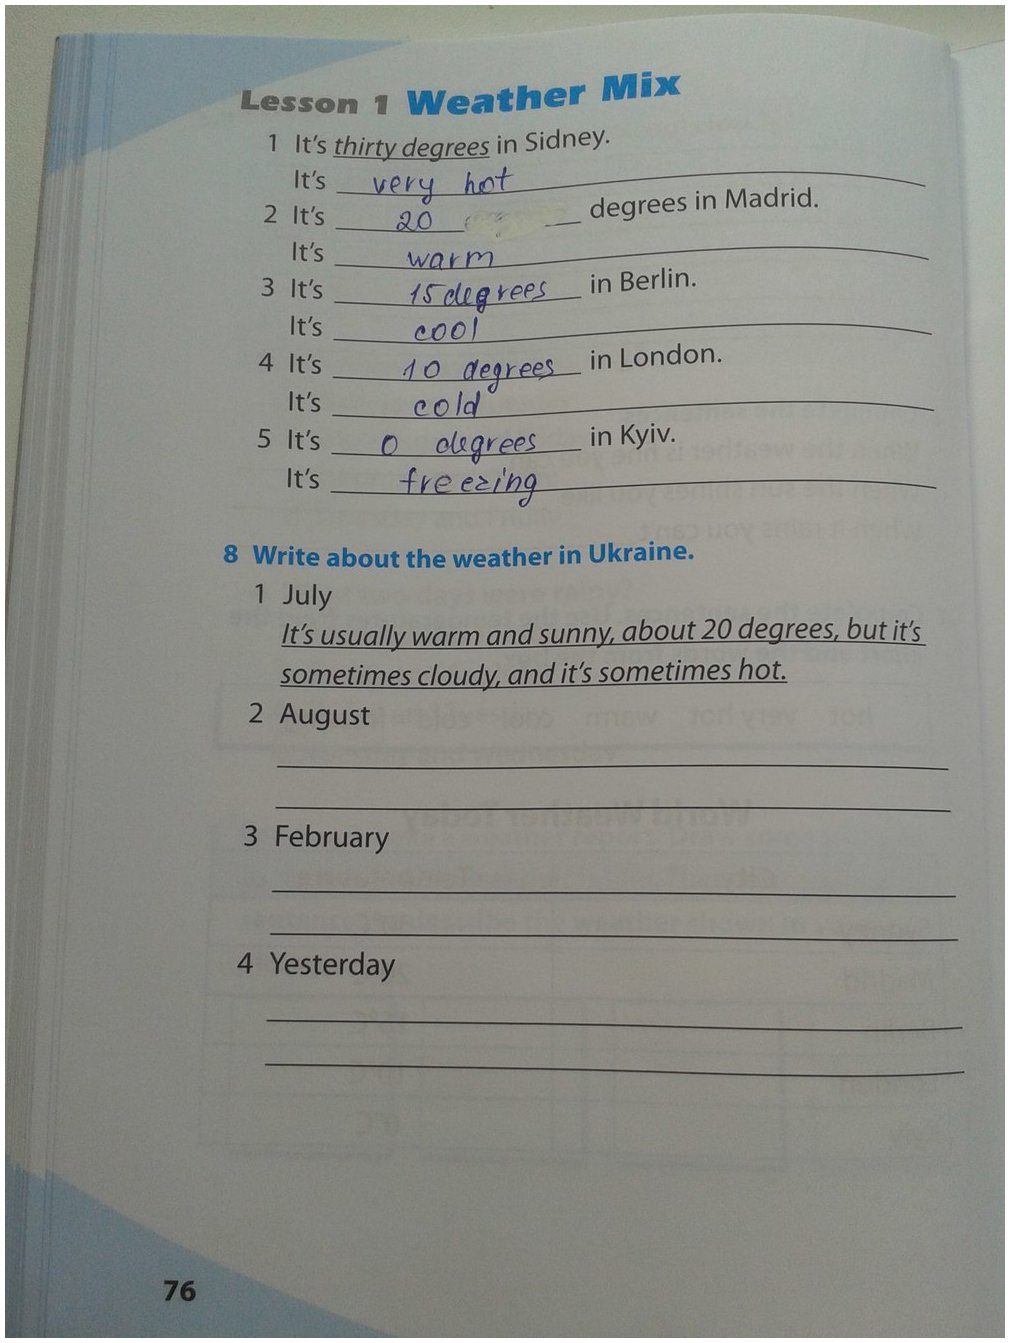 Lesson 1 Weather Mix
1 It's thirty degrees in Sidney.
It's very hot
2 It's 20 degrees in Madrid.
It's warm
3 It's 15 degrees in Berlin.
It's cool
4 It's 10 degrees in London.
It's cold
5 It's 0 degrees in Kyiv.
It's freezing
8 Write about the weather in Ukraine.
1 July
It's usually warm and sunny, about 20 degrees, but it's
sometimes cloudy, and it's sometimes hot.
2 August
3 February
4 Yesterday
76